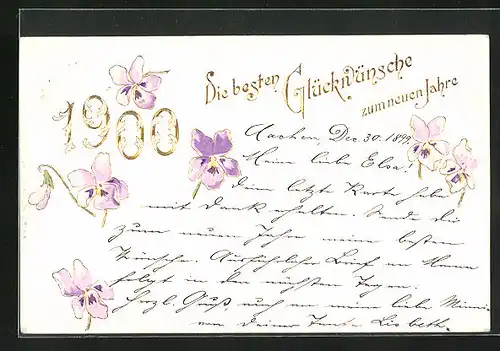 1900
Die besten Glückwünsche
zum neuen Jahre
Aachen, Dez. 30. 1899
Meine liebe Elsa!
Deine letzte Karte habe
mit Dank erhalten. Sende dir
zum neuen Jahre meine besten
Wünsche. Ausführlicher Brief an Mama
folgt in den nächsten Tagen.
Herzl. Gruß auch an meine liebe Mimi
von Deiner Tante Lisbeth.